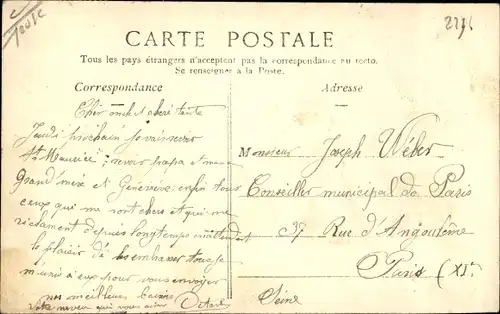 CARTE POSTALE
Tous les pays étrangers n'acceptent pas la correspondance au recto.
Se renseigner à la Poste.
Correspondance
Adresse
Cher oncle et chère tante
Jeudi prochain je vais revoir
St Maurice, revoir papa et maman
Grand'mère et Geneviève enfin tous
ceux qui me sont chers et qui me
réclament depuis longtemps
le plaisir de les embrasser
à eux pour vous envoyer
nos meilleurs baisers
Votre neveu qui vous aime
Monsieur Joseph Wéber
Conseiller municipal de Paris
39 Rue d'Angoulême
Paris (XIe)
Seine